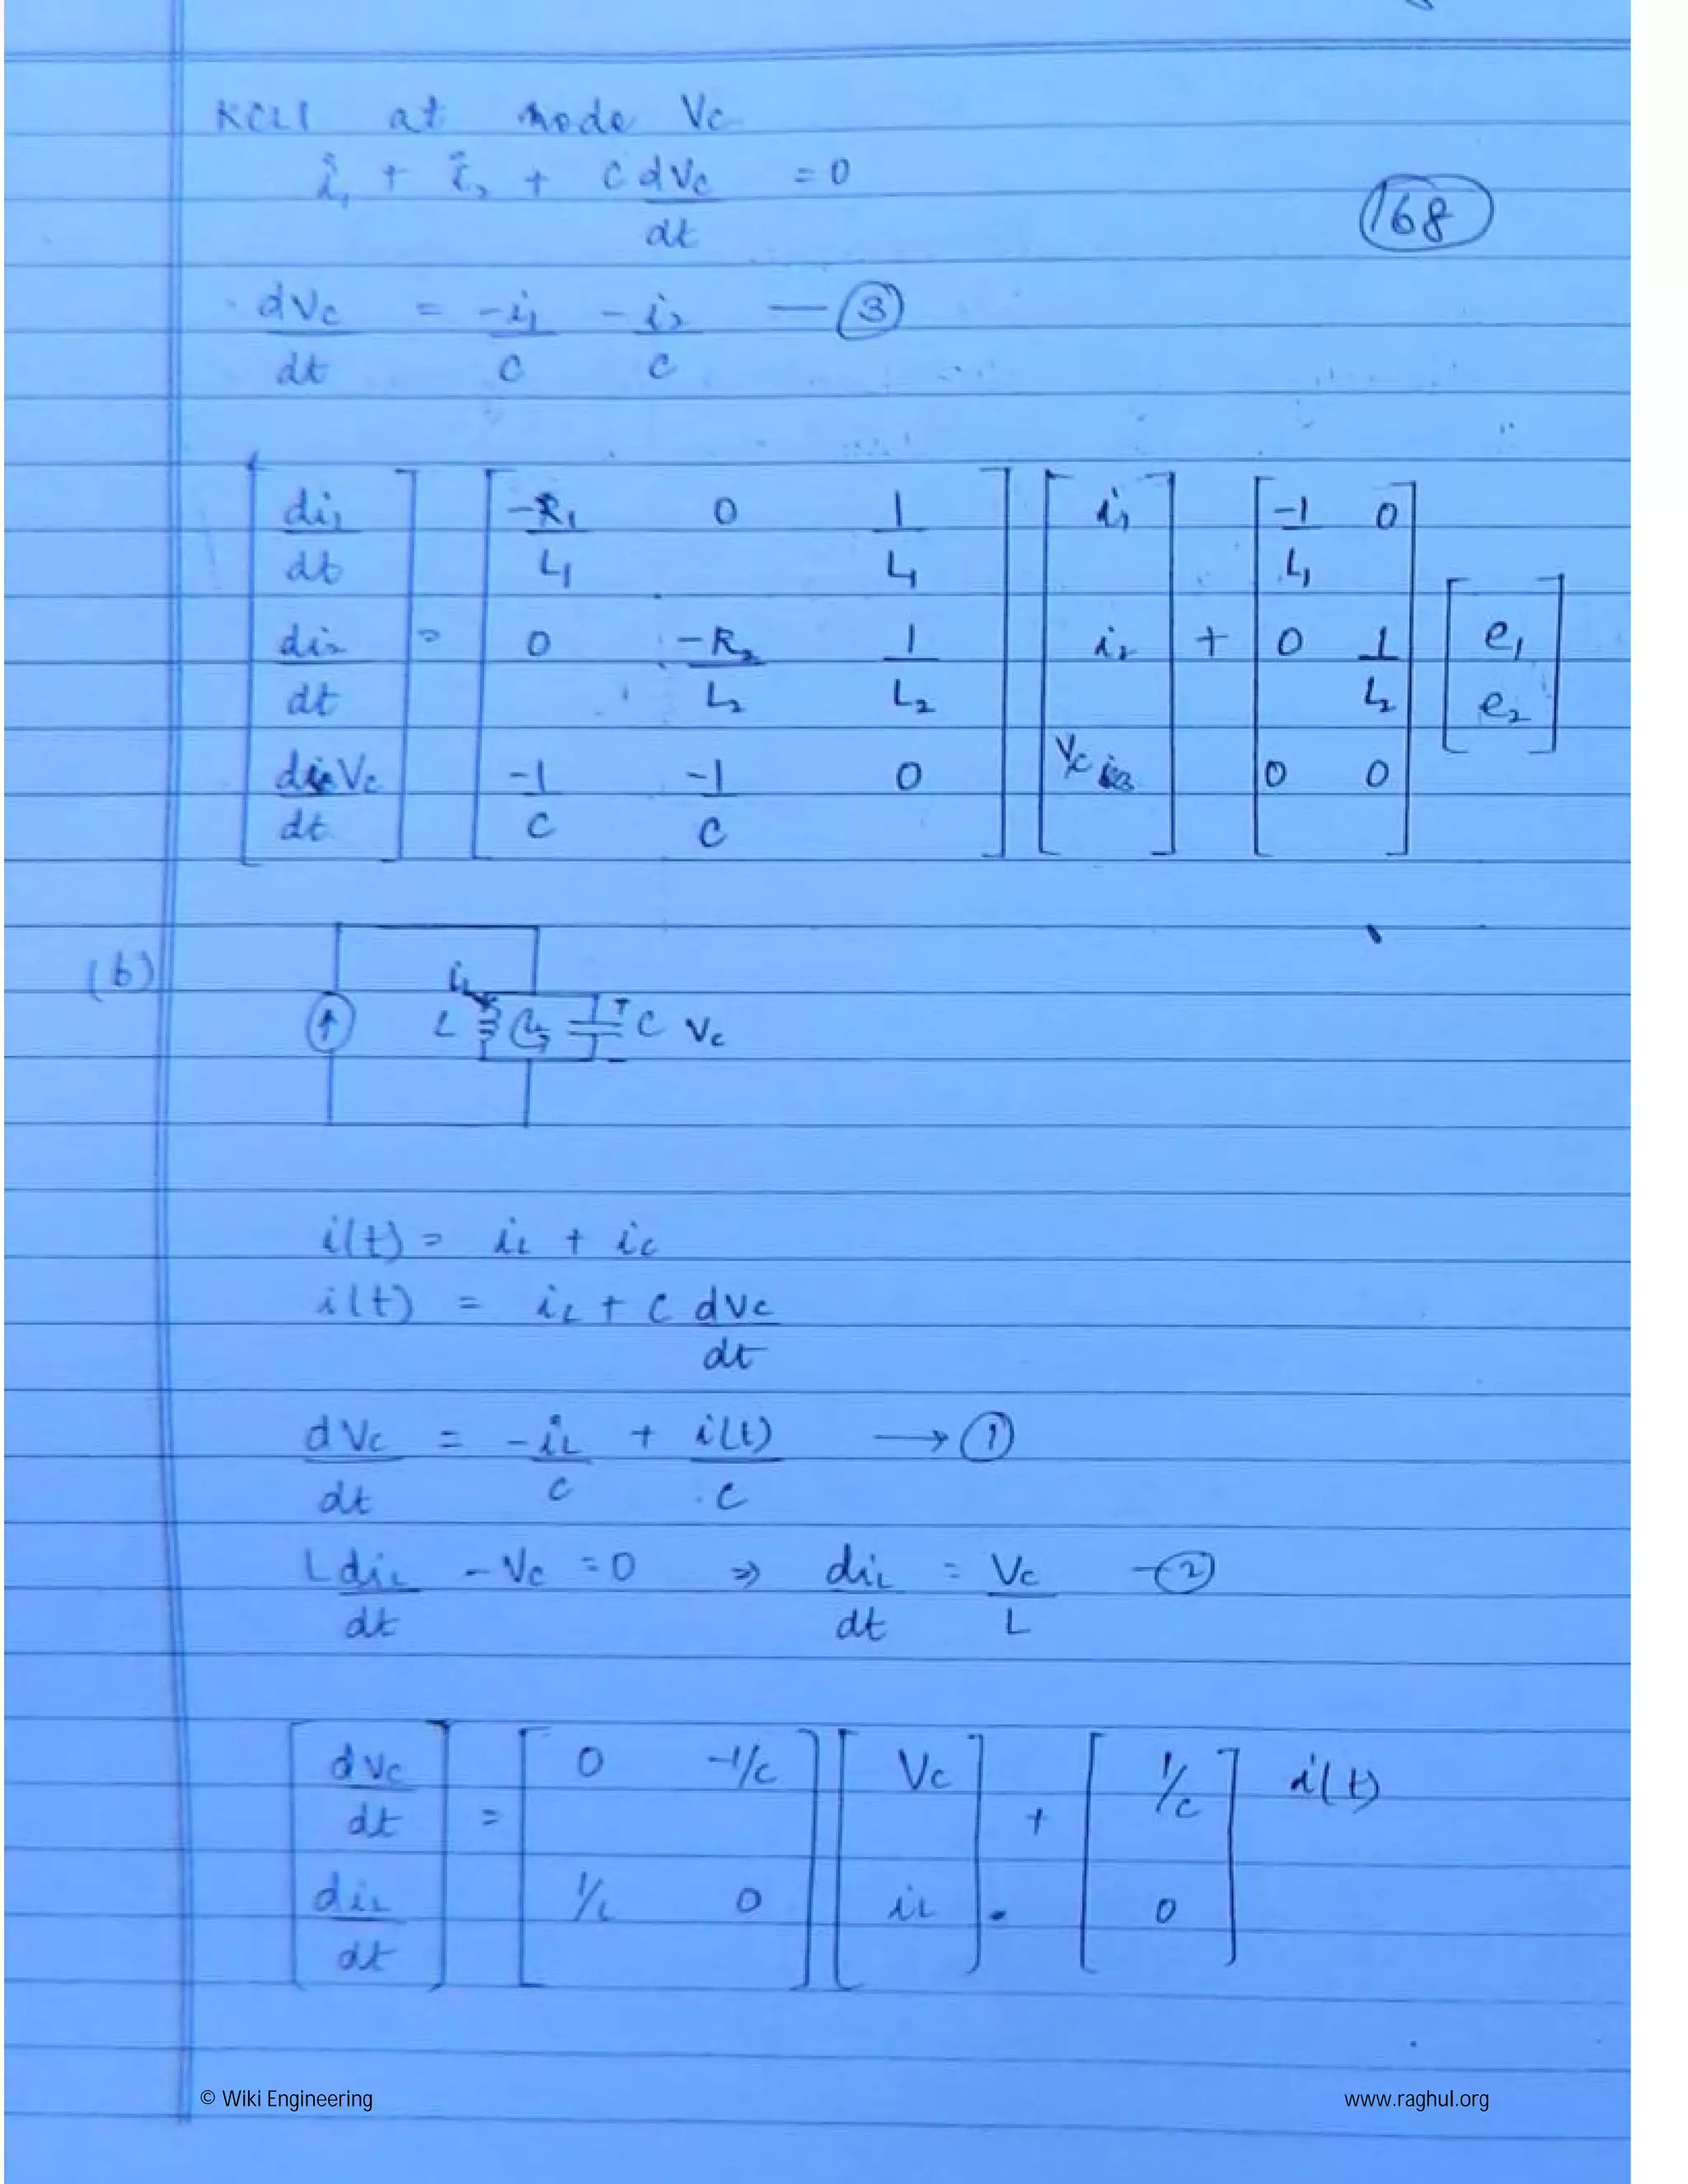 KCL1 at node Vc
i₁ + i₂ + C dVc/dt = 0
168
dVc/dt = -i₁/C - i₂/C — ③
[di₁/dt; di₂/dt; dVc/dt] = [-R₁/L₁ 0 1/L₁; 0 -R₂/L₂ 1/L₂; -1/C -1/C 0] [i₁; i₂; Vc] + [-1/L₁ 0; 0 1/L₂; 0 0] [e₁; e₂]
(b)
iL
L C Vc
i(t) = iL + ic
i(t) = iL + C dVc/dt
dVc/dt = -iL/C + i(t)/C → ①
L diL/dt - Vc = 0 ⇒ diL/dt = Vc/L — ②
[dVc/dt; diL/dt] = [0 -1/C; 1/L 0] [Vc; iL] + [1/C; 0] i(t)
© Wiki Engineering www.raghul.org